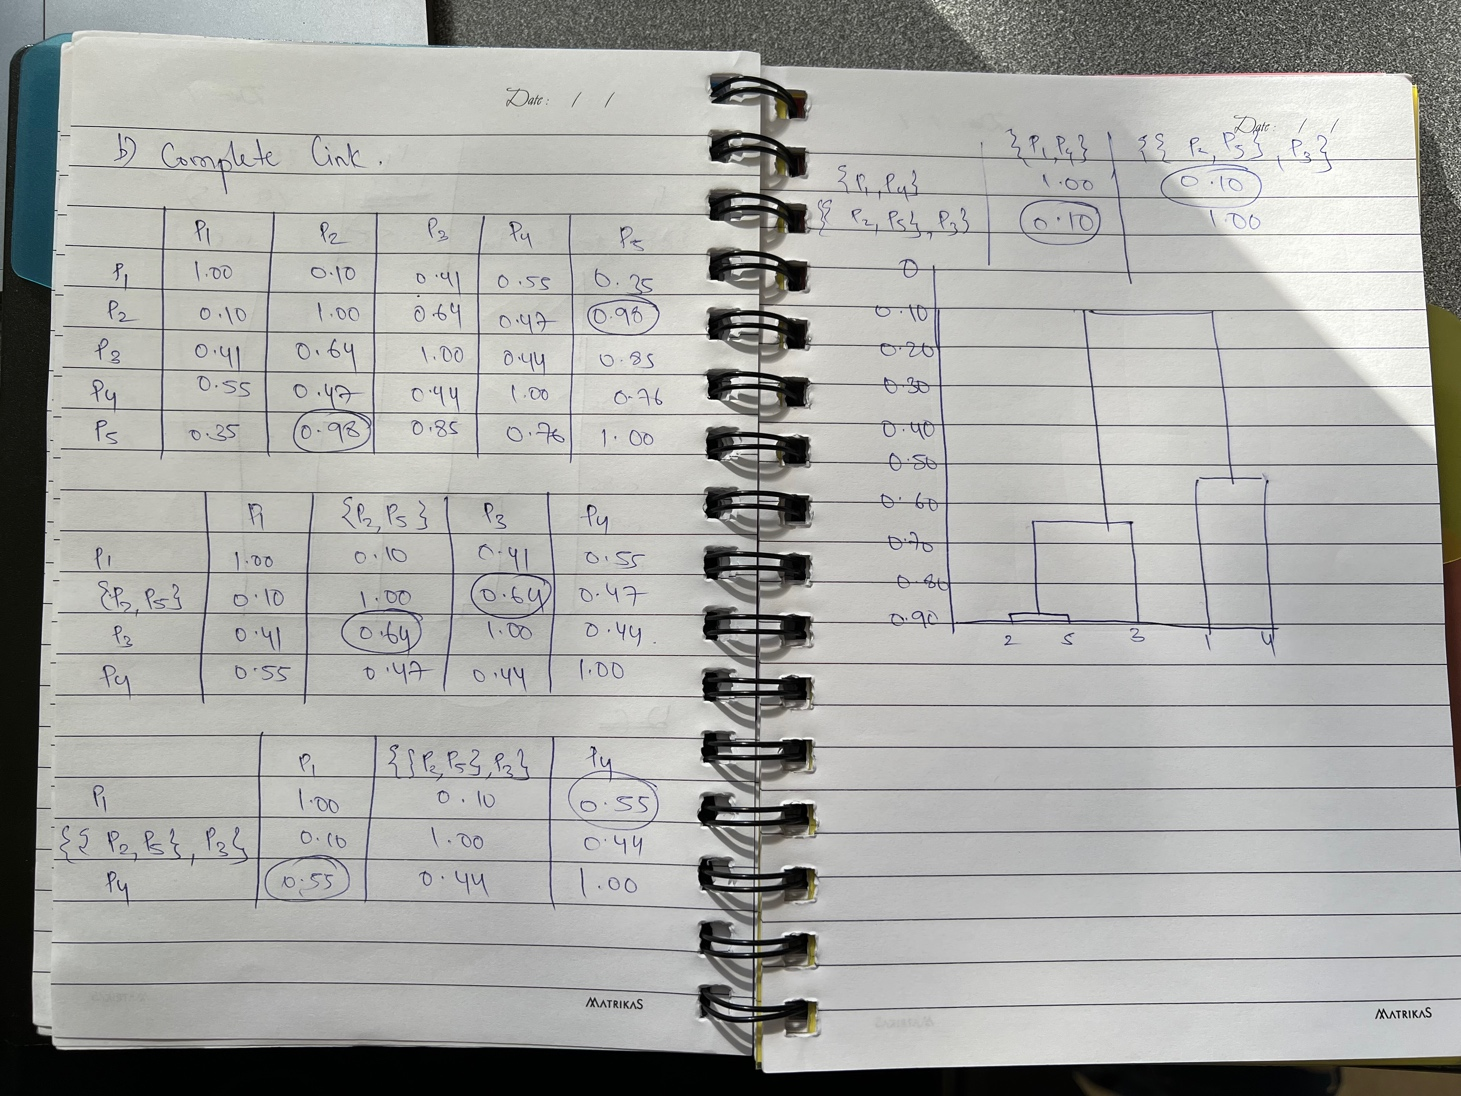 Date: / /
b) Complete Link.
P1 P2 P3 P4 P5
P1 1.00 0.10 0.41 0.55 0.35
P2 0.10 1.00 0.64 0.47 0.98
P3 0.41 0.64 1.00 0.44 0.85
P4 0.55 0.47 0.44 1.00 0.76
P5 0.35 0.98 0.85 0.76 1.00
P1 {P2, P5} P3 P4
P1 1.00 0.10 0.41 0.55
{P2, P5} 0.10 1.00 0.64 0.47
P3 0.41 0.64 1.00 0.44.
P4 0.55 0.47 0.44 1.00
P1 {{P2, P5}, P3} P4
P1 1.00 0.10 0.55
{{P2, P5}, P3} 0.10 1.00 0.44
P4 0.55 0.44 1.00
MATRIKAS
Date: / /
{P1, P4} {{P2, P5}, P3}
{P1, P4} 1.00 0.10
{{P2, P5}, P3} 0.10 1.00
0
0.10
0.20
0.30
0.40
0.50
0.60
0.70
0.80
0.90
2 5 3 1 4
MATRIKAS